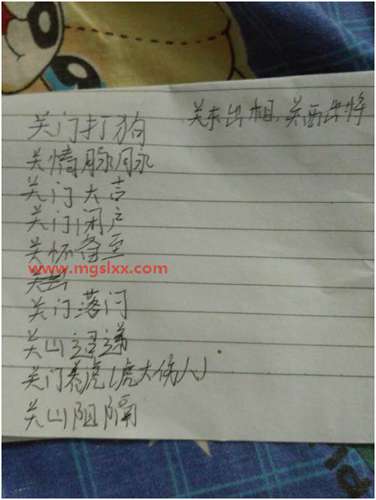 关门打狗 关东出相,关西出将
关情脉脉
关门大吉
关门闭户
关怀备至
www.mgslxx.com
关门落闩
关山迢递
关门养虎(虎大伤人)
关山阻隔